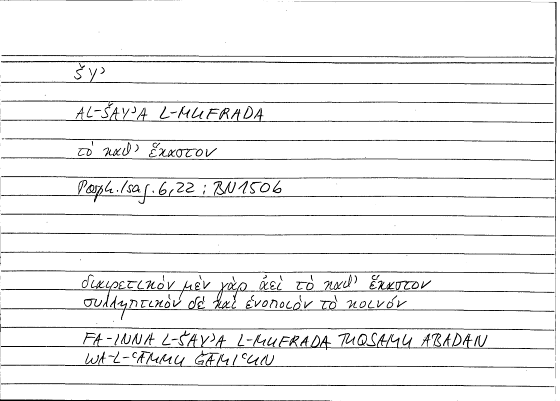 ŠYʾ
AL-ŠAYʾA L-MUFRADA
τὸ καθ' ἕκαστον
Porph. Isag. 6,22 ; BN 1506
διαιρετικὸν μὲν γὰρ ἀεὶ τὸ καθ' ἕκαστον
συλληπτικὸν δὲ καὶ ἑνοποιὸν τὸ κοινόν
FA-INNA L-ŠAYʾA L-MUFRADA TUQSAMU ABADAN
WA-L-ʿĀMMU ǦAMIʿUN